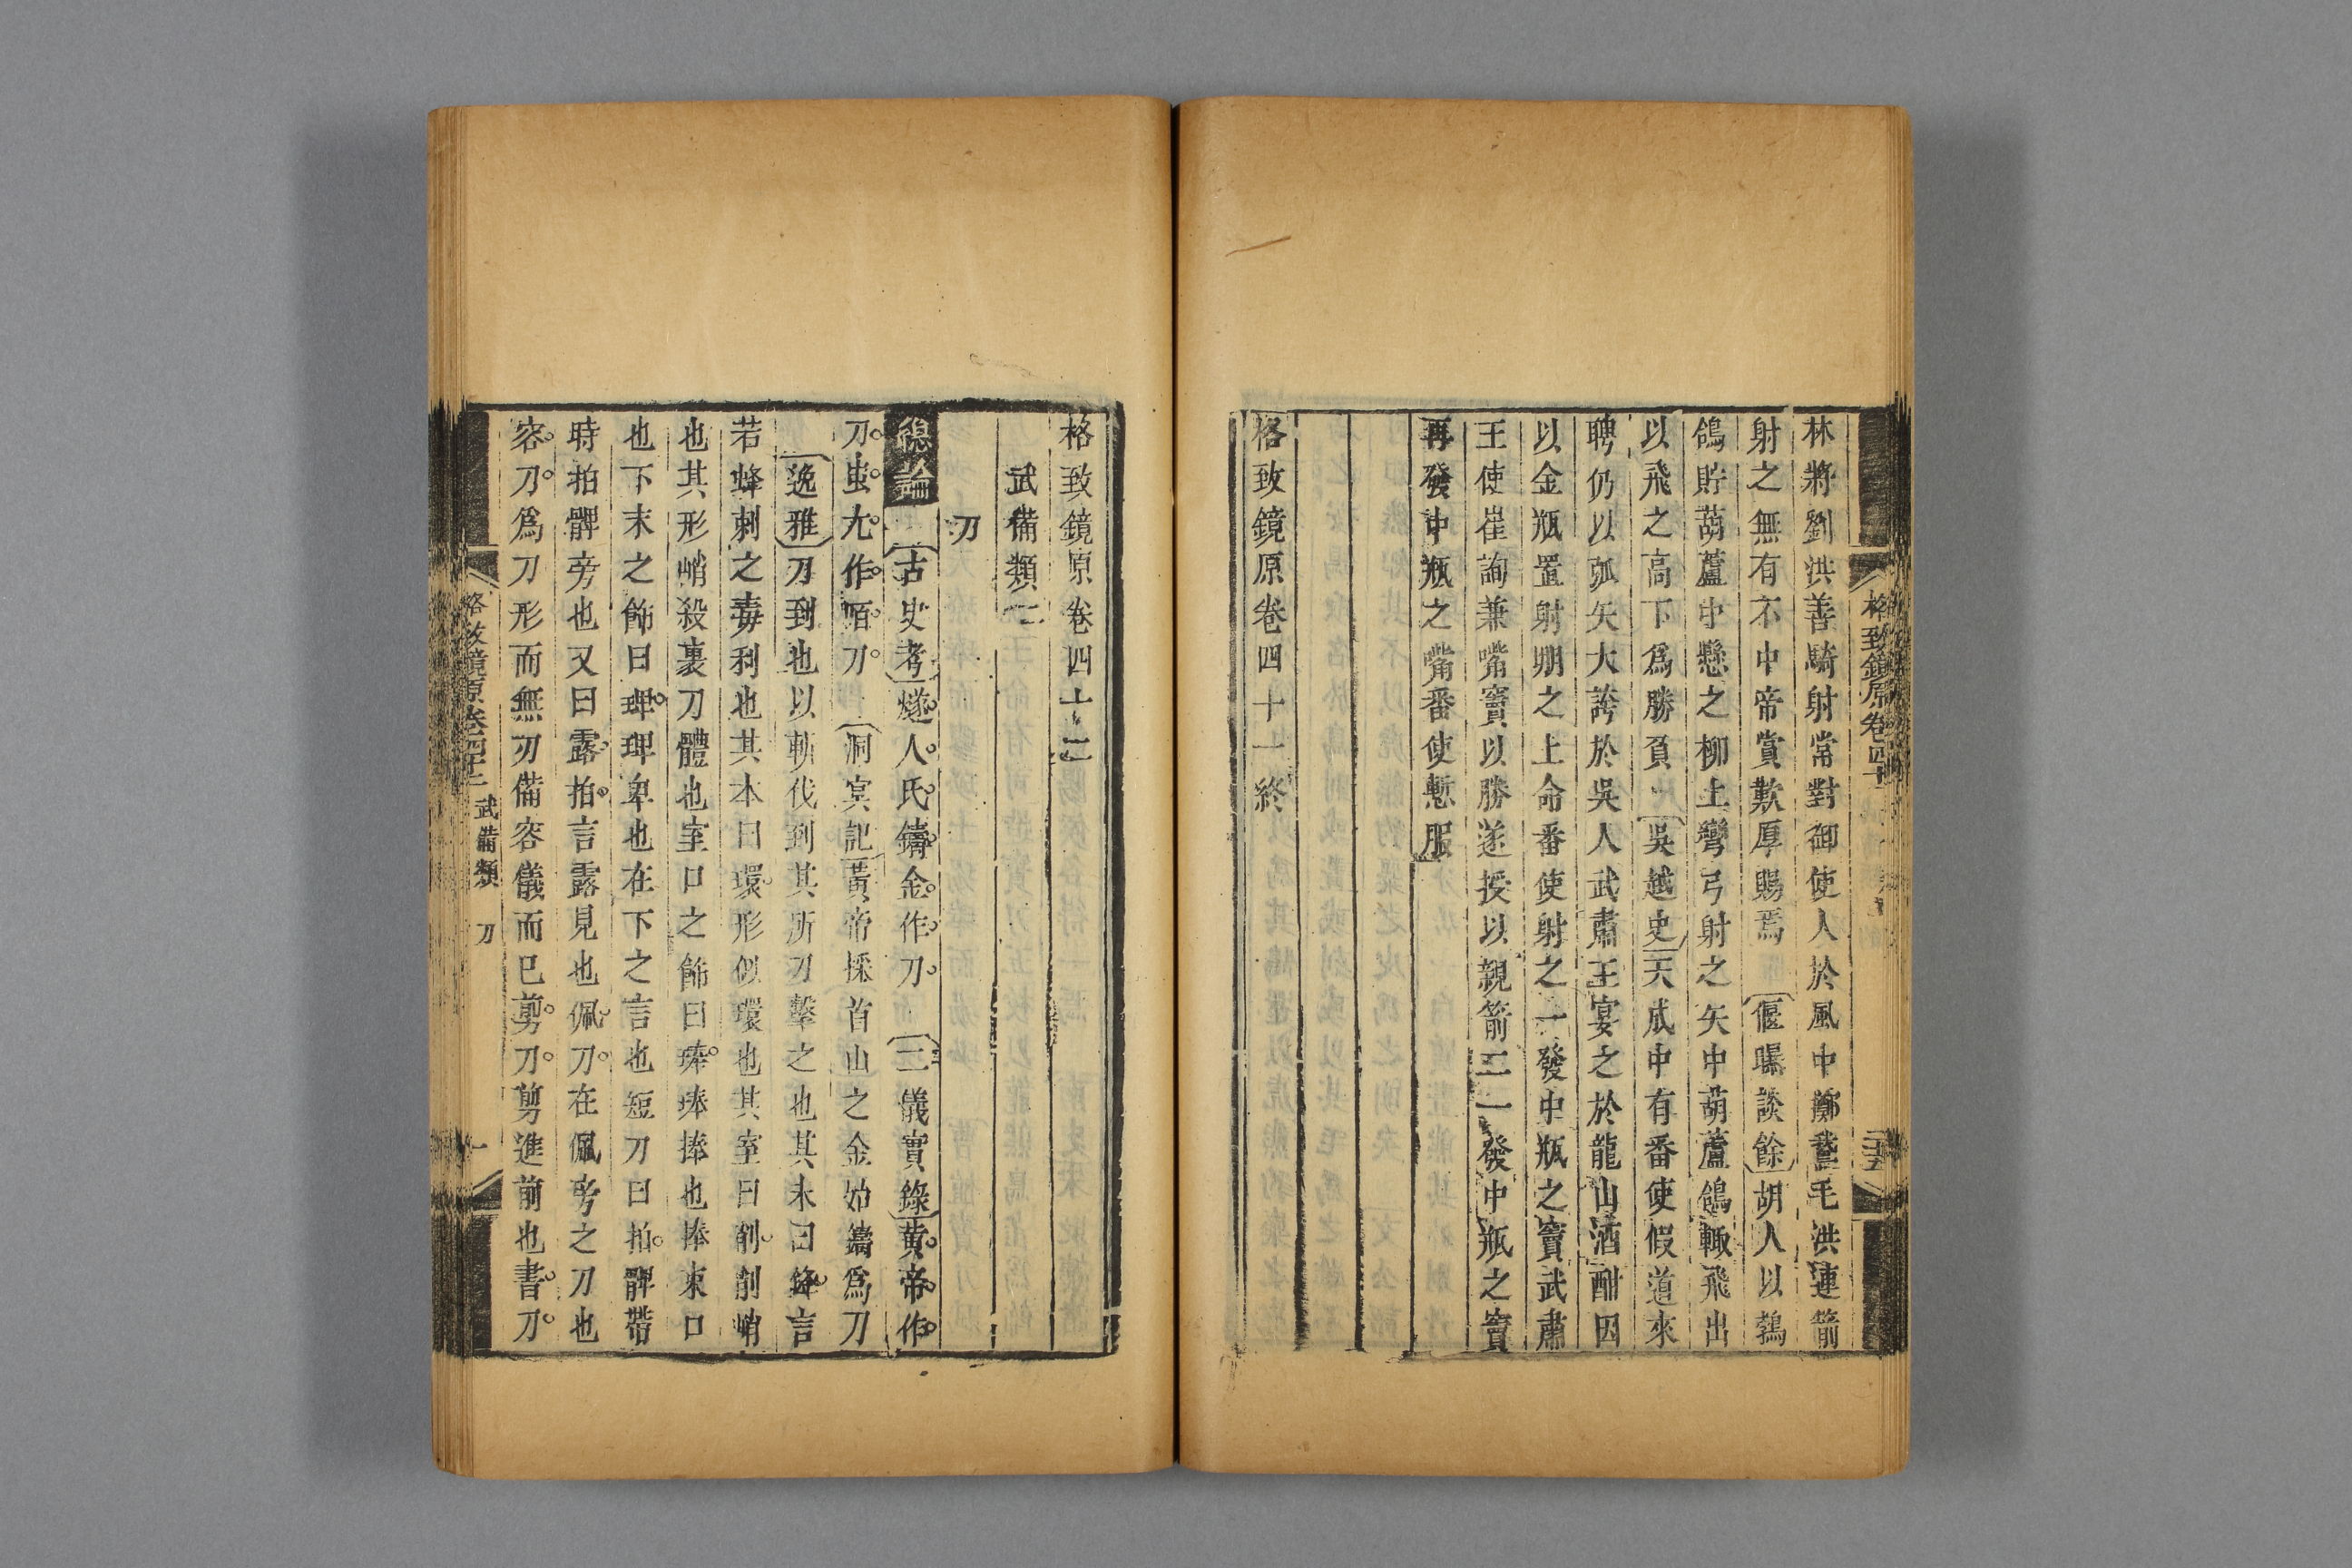 林將劉洪善騎射常對御使人於風中擲鵞毛洪連箭
射之無有不中帝賞歎厚賜焉　偃曝談餘胡人以鵓
鴿貯葫蘆中懸之柳上彎弓射之矢中葫蘆鴿輙飛出
以飛之高下爲勝負　吳越史天成中有番使假道來
聘仍以弧矢大誇於吳人武肅王宴之於龍山酒酣因
以金瓶置射堋之上命番使射之一發中瓶之竇武肅
王使崔詢兼嘴竇以勝遂授以親箭二一發中瓶之竇
再發中瓶之嘴番使慙服
格致鏡原卷四十一終
格致鏡原卷四十二
武備類二
刀
總論　古史考燧人氏鑄金作刀　二儀實錄黃帝作
刀蚩尤作陌刀　洞冥記黃帝採首山之金始鑄爲刀
逸雅刀到也以斬伐到其所刀擊之也其末曰鋒言
若蜂刺之毒利也其本曰環形似環也其室曰削削峭
也其形峭殺裹刀體也室口之飾曰琫琫捧也捧束口
也下末之飾曰琕琕卑也在下之言也短刀曰拍髀帶
時拍髀旁也又曰露拍言露見也佩刀在佩旁之刀也
容刀爲刀形而無刃備容儀而已剪刀剪進前也書刀
格致鏡原卷四十二　武備類　刀　一